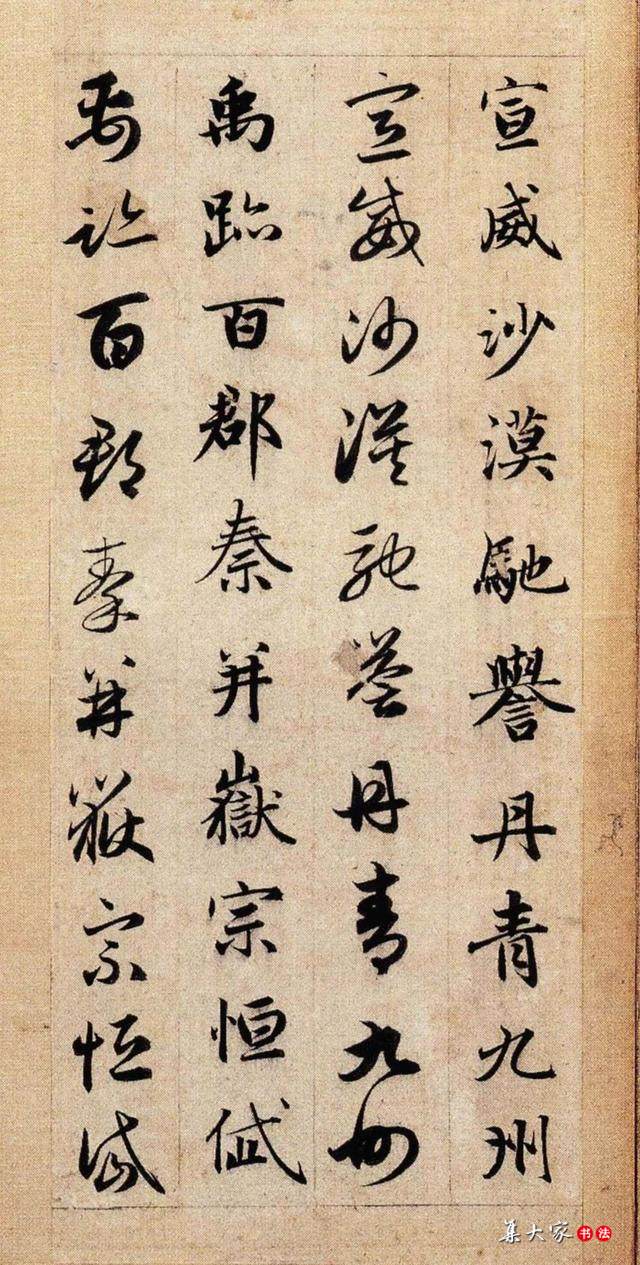 宣威沙漠馳譽丹青九州
宣威沙漠馳譽丹青九州
禹跡百郡秦并嶽宗恒岱
禹跡百郡秦并嶽宗恒岱
集大家书法